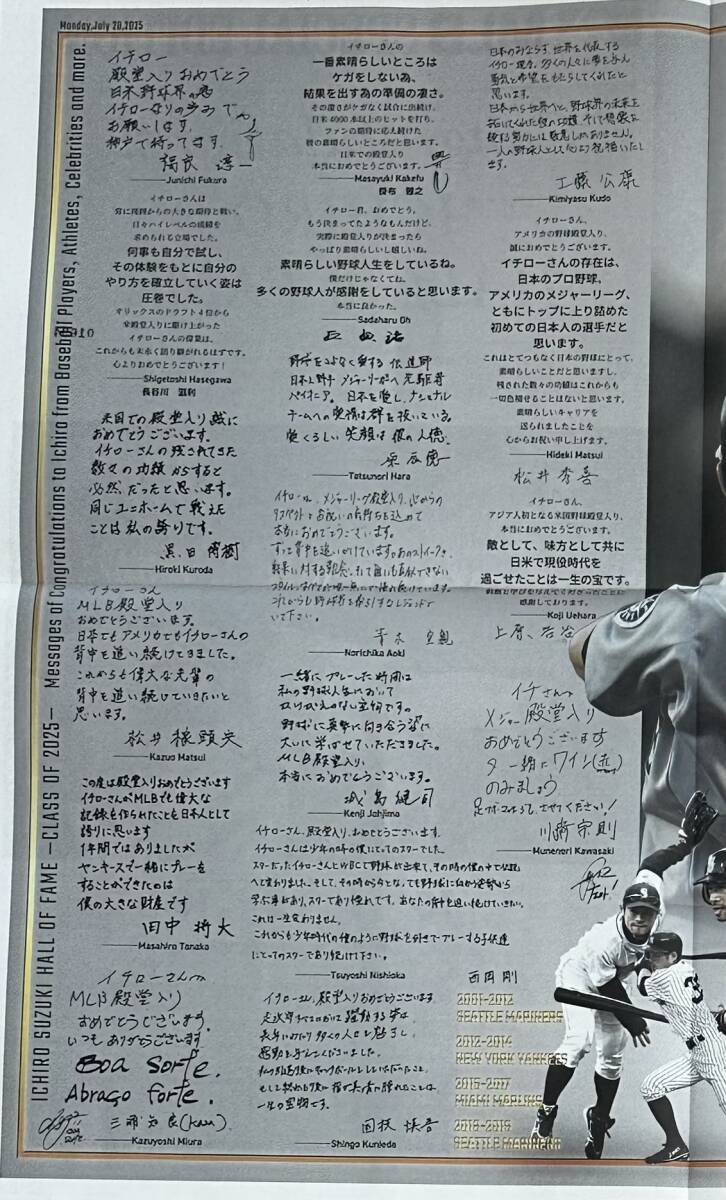 Monday,July 28,2025
ICHIRO SUZUKI HALL OF FAME —CLASS OF 2025— Messages of Congratulations to Ichiro from Baseball Players, Athletes, Celebrities and more.
イチロー
殿堂入りおめでとう
日本野球界の
イチローなりの歩みで
お願いします。
神戸で待ってます。
福良 淳一
Junichi Fukura
イチローさんは
常に周囲からの大きな期待と戦い、
日々ハイレベルの成績を
求められる立場でした。
何事も自分で試し、
その体験をもとに自分の
やり方を確立していく姿は
圧巻でした。
オリックスのドラフト4位から
米殿堂入りに駆け上がった
イチローさんの偉業は、
これからも末永く語り継がれるはずです。
心よりおめでとうございます!
Shigetoshi Hasegawa
長谷川 滋利
米国での殿堂入り誠に
おめでとうございます。
イチローさんの残されてきた
数々の功績からすると
必然だったと思います。
同じユニホームで戦えた
ことは私の誇りです。
黒田 博樹
Hiroki Kuroda
イチローさん
MLB殿堂入り
おめでとうございます。
日本でもアメリカでもイチローさんの
背中を追い続けてきました。
これからも偉大な先輩の
背中を追い続けていきたいと
思います。
松井稼頭央
Kazuo Matsui
この度は殿堂入りおめでとうございます
イチローさんがMLBでも偉大な
記録を作られたことを日本人として
誇りに思います
1年間ではありましたが
ヤンキースで一緒にプレーを
することができたのは
僕の大きな財産です
田中 将大
Masahiro Tanaka
イチローさんへ
MLB殿堂入り
おめでとうございます。
いつもありがとうございます。
Boa Sorte.
Abraço forte.
三浦知良(Kazu)
Kazuyoshi Miura
イチローさんの
一番素晴らしいところは
ケガをしない為、
結果を出す為の準備の凄さ。
その凄さがケガなく試合に出続け、
日米4000本以上のヒットを打ち、
ファンの期待に応え続けた
彼の素晴らしいところだと思います。
日米での殿堂入り
本当におめでとうございます。
Masayuki Kakefu
掛布 雅之
イチロー君、おめでとう。
もう決まってたようなもんだけど、
実際に殿堂入りが決まったら
やっぱり素晴らしいし嬉しいね。
素晴らしい野球人生をしているね。
僕だけじゃなくてね。
多くの野球人が感謝をしていると思います。
本当に良かった。
Sadaharu Oh
王 貞治
野球をこよなく愛する伝道師
日本人野手メジャーリーガー先駆者
パイオニア。日本を愛し、ナショナル
チームへの愛情は群を抜いている。
愛くるしい笑顔は彼の人徳。
原 辰徳
Tatsunori Hara
イチローさん、メジャーリーグ殿堂入り、心からの
リスペクトとお祝いの気持ちを込めて
本当におめでとうございます。
青木 宣親
Norichika Aoki
一緒にプレーした時間は
私の野球人生において
かけがえのない宝物です。
野球に真摯に向き合う姿に
大いに学ばせていただきました。
MLB殿堂入り
本当におめでとうございます。
城島健司
Kenji Johjima
イチローさん、殿堂入り、おめでとうございます。
イチローさんは少年の時の僕にとってのスターでした。
スターだったイチローさんとWBCで野球が出来て、その時の僕の中で伝説
へと変わりました。そして、その時から今となっても野球に向かう姿勢から
学ぶ事があり、スターであり憧れです。あなたの背中を追い続けていきたい。
これは一生変わりません。
これからも少年時代の僕のように野球を好きでプレーする子供達
にとってのスターであり続けて下さい。
Tsuyoshi Nishioka
西岡 剛
イチローさん、殿堂入りおめでとうございます
走攻守すべてにおいて躍動する姿は
長年にわたり多くの人々を魅了し、
感動を与えてくださいました。
一生の宝物です。
国枝 慎吾
Shingo Kunieda
日本のみならず、世界を代表する
イチロー選手、多くの人々に夢を与え
勇気と希望をもたらしてくれたと
思います。
日本から世界へと、野球界の未来を
一人の野球人として心より祝福いたし
ます。
工藤 公康
Kimiyasu Kudo
イチローさん、
アメリカの野球殿堂入り、
誠におめでとうございます。
イチローさんの存在は、
日本のプロ野球、
アメリカのメジャーリーグ、
ともにトップに上り詰めた
初めての日本人の選手だと
思います。
これはとてつもなく日本の野球にとって、
素晴らしいことだと思いますし、
残された数々の功績はこれからも
一切色褪せることはないと思います。
素晴らしいキャリアを
送られましたことを
心からお祝い申し上げます。
Hideki Matsui
松井秀喜
イチローさん、
アジア人初となる米国野球殿堂入り、
本当におめでとうございます。
敵として、味方として共に
日米で現役時代を
過ごせたことは一生の宝です。
感謝しております。
Koji Uehara
上原 浩治
イチさんへ
メジャー殿堂入り
おめでとうございます
夕 一緒にワイン(赤)
のみましょう
川﨑宗則
Munenori Kawasaki
2001-2012
SEATTLE MARINERS
2012-2014
NEW YORK YANKEES
2015-2017
MIAMI MARLINS
2018-2019
SEATTLE MARINERS